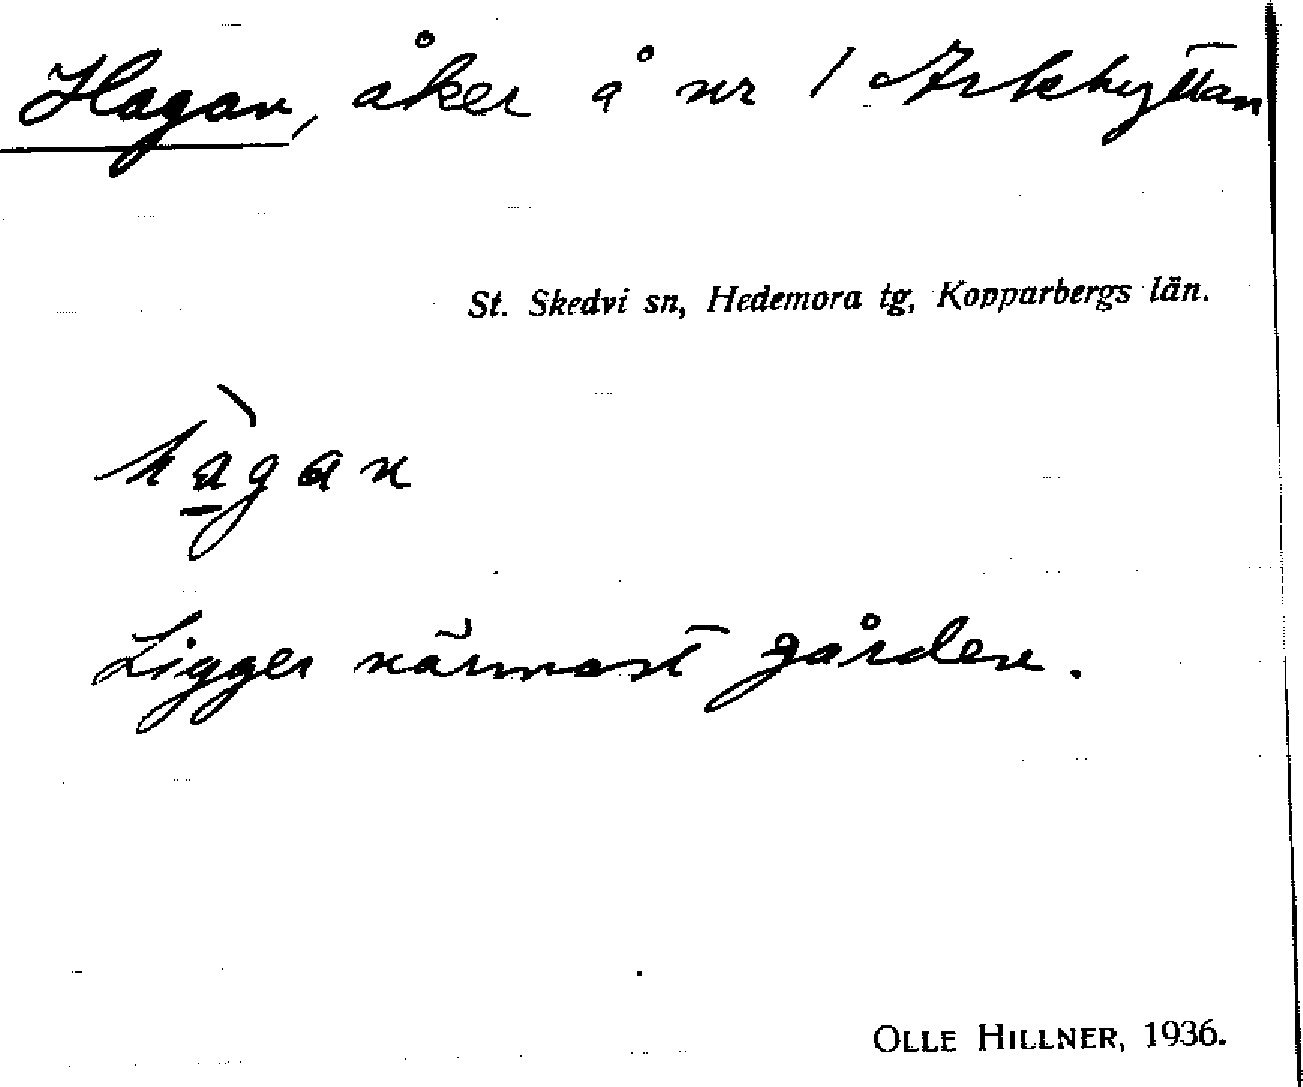 Hagan, åker å nr 1 Arkhyttan
St. Skedvi sn, Hedemora tg, Kopparbergs län.
hà̱gan
Ligger närmast gården.
OLLE HILLNER, 1936.